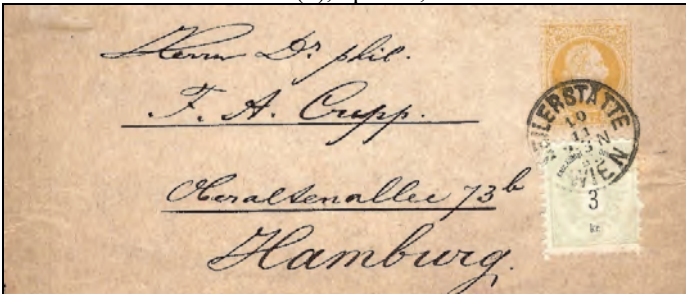 Herrn Dr. phil.
F. A. Cupp.
Oberaltenallee 73b
Hamburg.
SEILERSTÄTTE
WIEN
3
kr